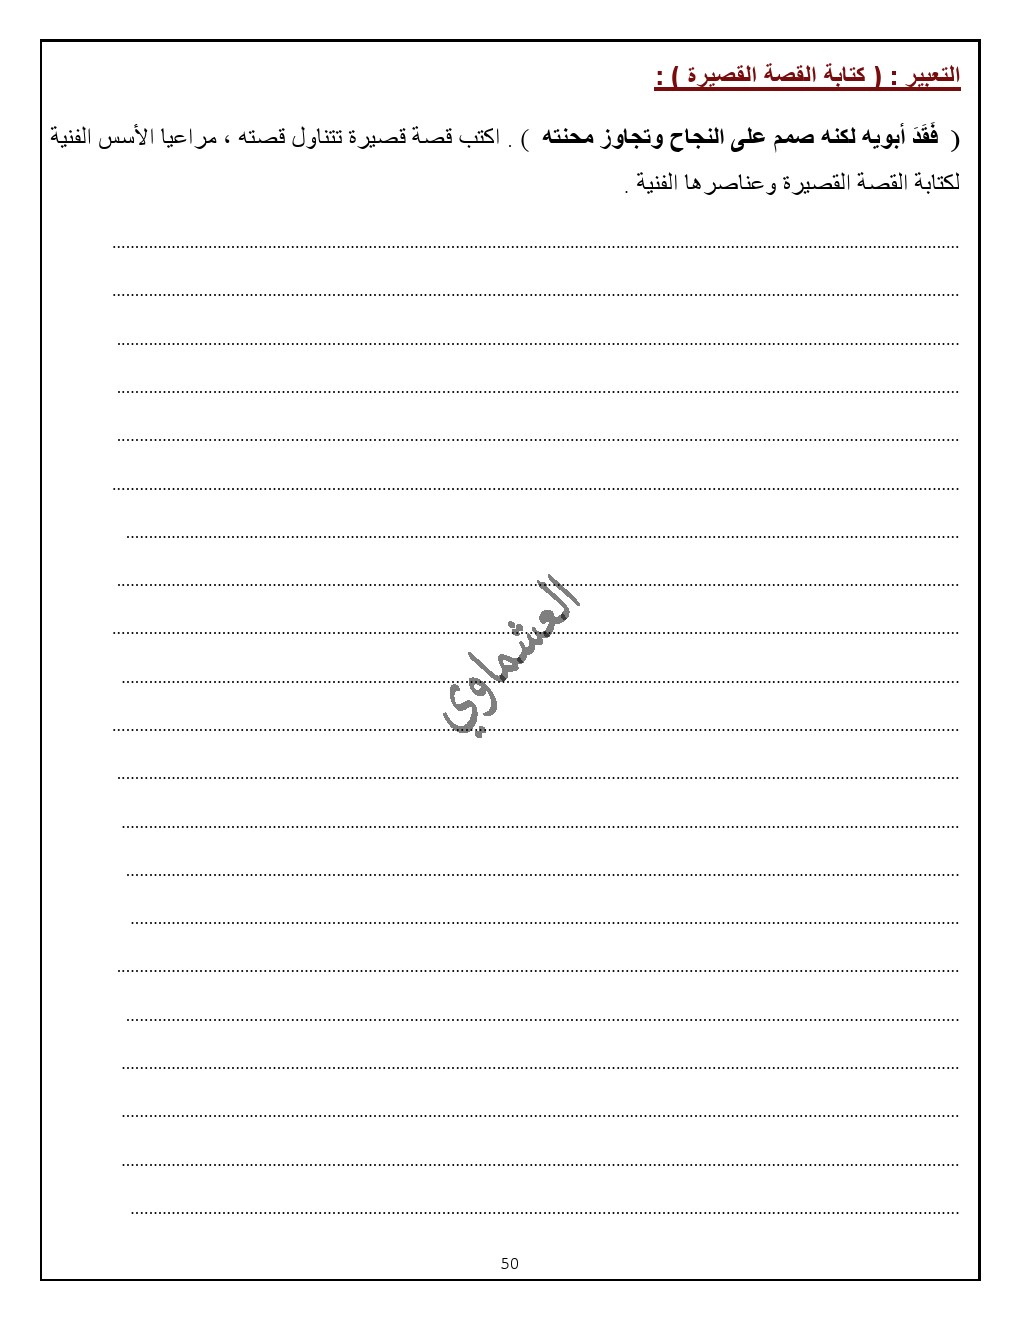 التعبير : ( كتابة القصة القصيرة ) :
( فَقَدَ أبويه لكنه صمم على النجاح وتجاوز محنته ) . اكتب قصة قصيرة تتناول قصته ، مراعيا الأسس الفنية
لكتابة القصة القصيرة وعناصرها الفنية .
العشماوي
50